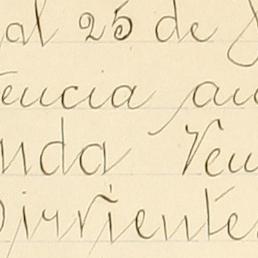 al 25 de
encia an
nda Ven
Dirviente